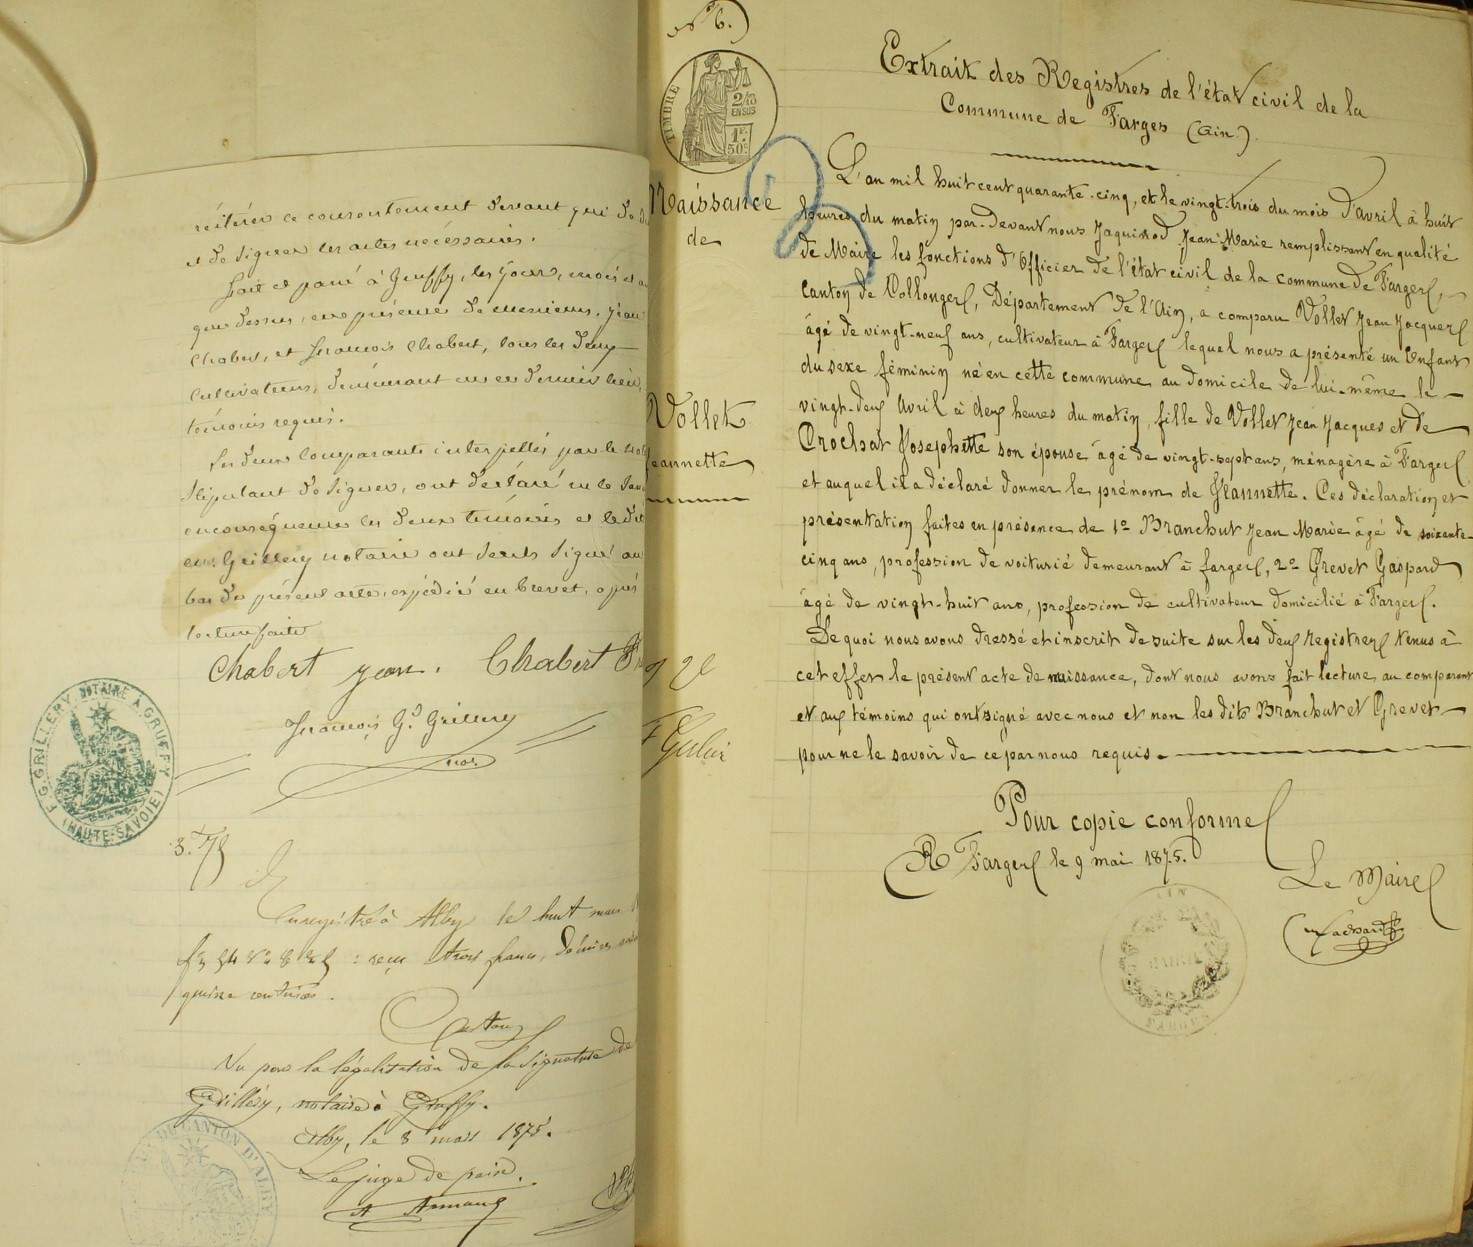 réitérer ce consentement devant qui de
et de signer les actes nécessaires.
fait et passé à Gruffy, les jour, mois et
que dessus, en présence de messieurs, Jean
Chabert, et François Chabert, tous les deux
cultivateurs, demeurant en ce dernier lieu,
témoins requis.
Les deux comparants interpellés par le
stipulant de signer, ont déclaré ne le
en conséquence les deux témoins et le dit
Grillery notaire ont seuls signé au
bas du présent acte, expédié en brevet, après
lecture faite
Chabert Jean. Chabert
François Gd Grillery
not.
F. G. GRILLERY, NOTAIRE A GRUFFY
(HAUTE-SAVOIE)
3.75
Enregistré à Alby le huit mars
reçu trois francs, décimes
quinze centimes.
Vu pour la légalisation de la signature de
Grillery, notaire à Gruffy.
Alby, le 8 mars 1875.
Le juge de paix,
A Armand
DU CANTON D'ALBY
N° 6.
TIMBRE
2/10
EN SUS
1F.
50c
Naissance
de
Vollet
Jeannette
Extrait des Registres de l'état civil de la
Commune de Farges (Ain.)
L'an mil huit cent quarante-cinq, et le vingt-trois du mois d'avril à huit
heures du matin par-devant nous Jaquinod Jean Marie remplissant en qualité
de Maire les fonctions d'Officier de l'état civil de la commune de Farges,
Canton de Collonges, Département de l'Ain, a comparu Vollet Jean Jacques
âgé de vingt-neuf ans, cultivateur à Farges lequel nous a présenté un Enfant
du sexe féminin né en cette commune au domicile de lui-même le
vingt-deux Avril à deux heures du matin, fille de Vollet Jean Jacques et de
Crochat Josephtte son épouse âgé de vingt-sept ans, ménagère à Farges
et auquel il a déclaré donner le prénom de Jeannette. Ces déclaration et
présentation faites en présence de 1° Branchut Jean Marie âgé de soixante-
cinq ans, profession de voiturié demeurant à farges, 2° Grevet Gaspard
âgé de vingt-huit ans, profession de cultivateur domicilié à Farges.
De quoi nous avons dressé et inscrit de suite sur les deux registres tenus à
cet effet le présent acte de naissance, dont nous avons fait lecture au comparant
et aux témoins qui ont signé avec nous et non les dits Branchut et Grevet
pour ne le savoir de ce par nous requis.
Pour copie conforme
Farges le 9 mai 1875.
Le Maire